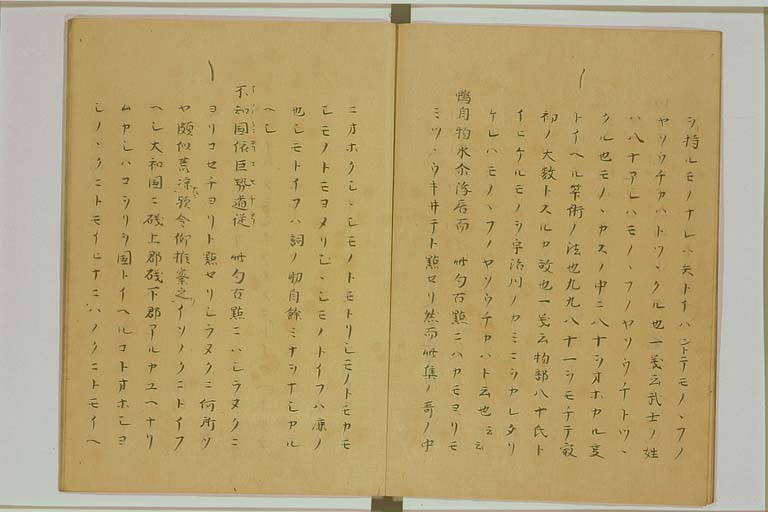 シ持ルモノナレハ矢トイハントテモノヽフノ
ヤソウチカハトツヽクル也一義云武士ノ姓
ハ八十アレハモノヽフノヤソウチトツヽ
クル也モノヽカスノ中ニ八十シオホカル
トイヘル算術ノ法也九九八十一シモチテ
初ノ大数トスルカ故也一義云物部八十氏ト
イヒケルモノシ宇治川ノカミニシカレタリ
ケレハモノヽフノヤソウチカハト云也云云
鴨自物水介浮居而 此句古點ニハカモヨリモ
ミツヽウキヰテト點セリ然而此集ノ哥ノ中
ニオホクシヽシモノトモトリシモノトモカモ
シモノトモヨメリシヽシモノトイフハ鹿ノ
也シモトイフハ詞ノ助自餘ミナシナシカル
ヘシ
不知国依巨勢道従 此句古點ニハシラヌクニ
ヨリコセチヨリト點セリシラヌクニ何所ソ
ヤ頗似荒涼 今仰推察之イソノクニトイフ
ヘシ大和国ニ磯上郡磯下郡アルカユヘナリ
ムカシハコシリシ国トイヘルコトオホシヨ
シノヽクニトモイヒナニハノクニトモイヘ